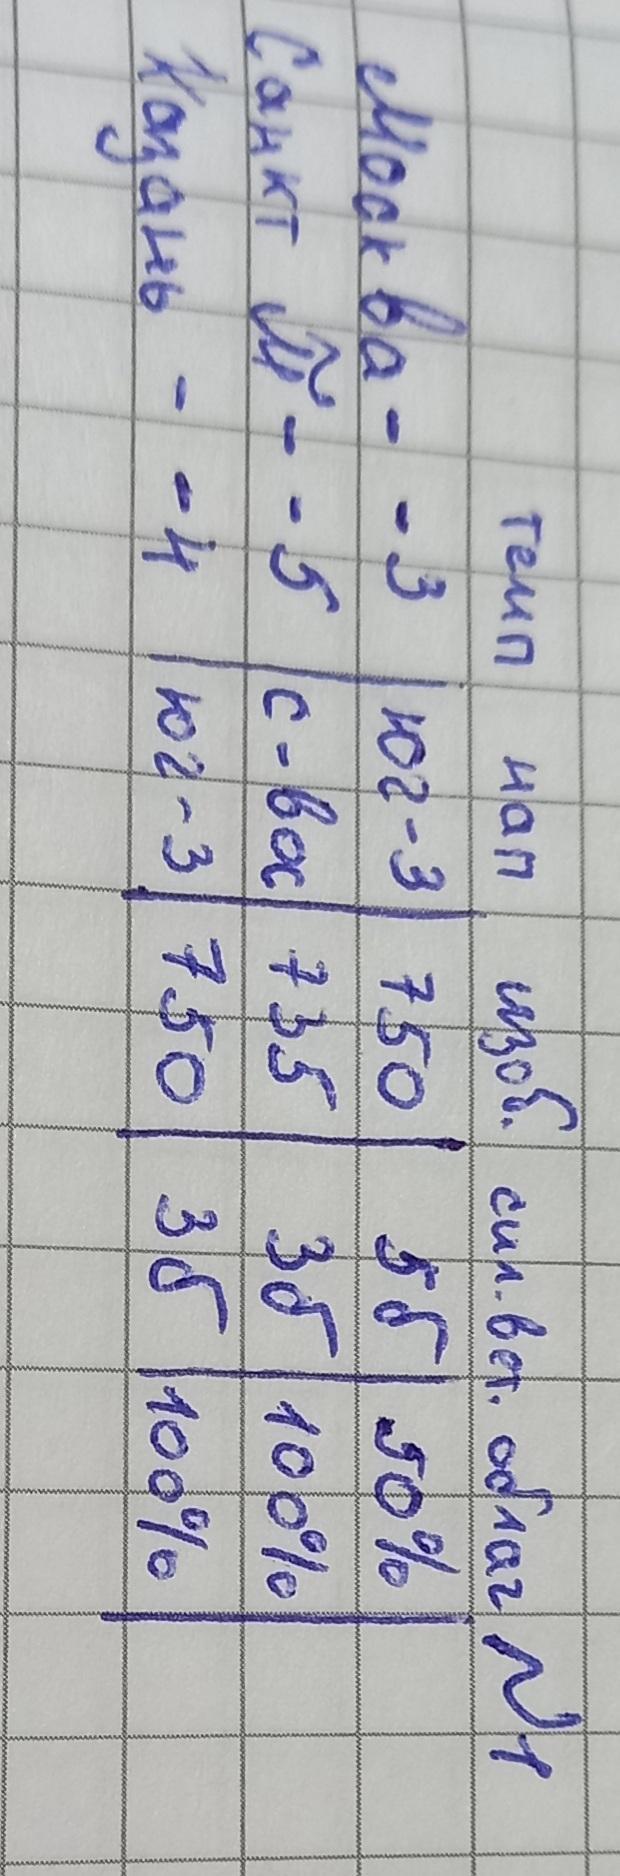 темп нап изоб. сил.вет. облаг №1
Москва - -3 | юг-3 | 750 | 5б | 50% |
Санкт П - -5 | с-вос | 735 | 3б | 100% |
Казань - -4 | юг-3 | 750 | 3б | 100% |